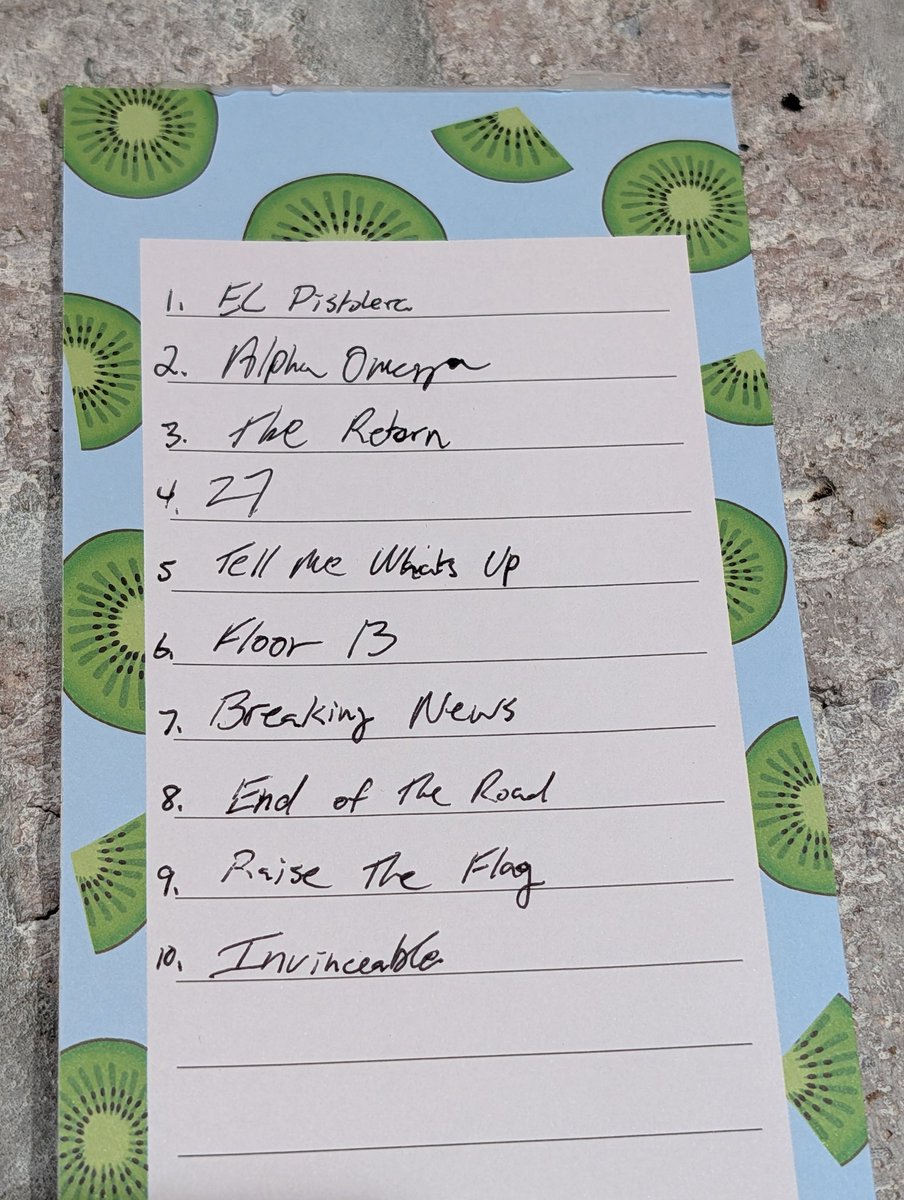 1. EL Pistolero
2. Alpha Omega
3. The Retorn
4. 27
5 Tell me Whats Up
6. Floor 13
7. Breaking News
8. End of The Road
9. Raise The Flag
10. Invinceable